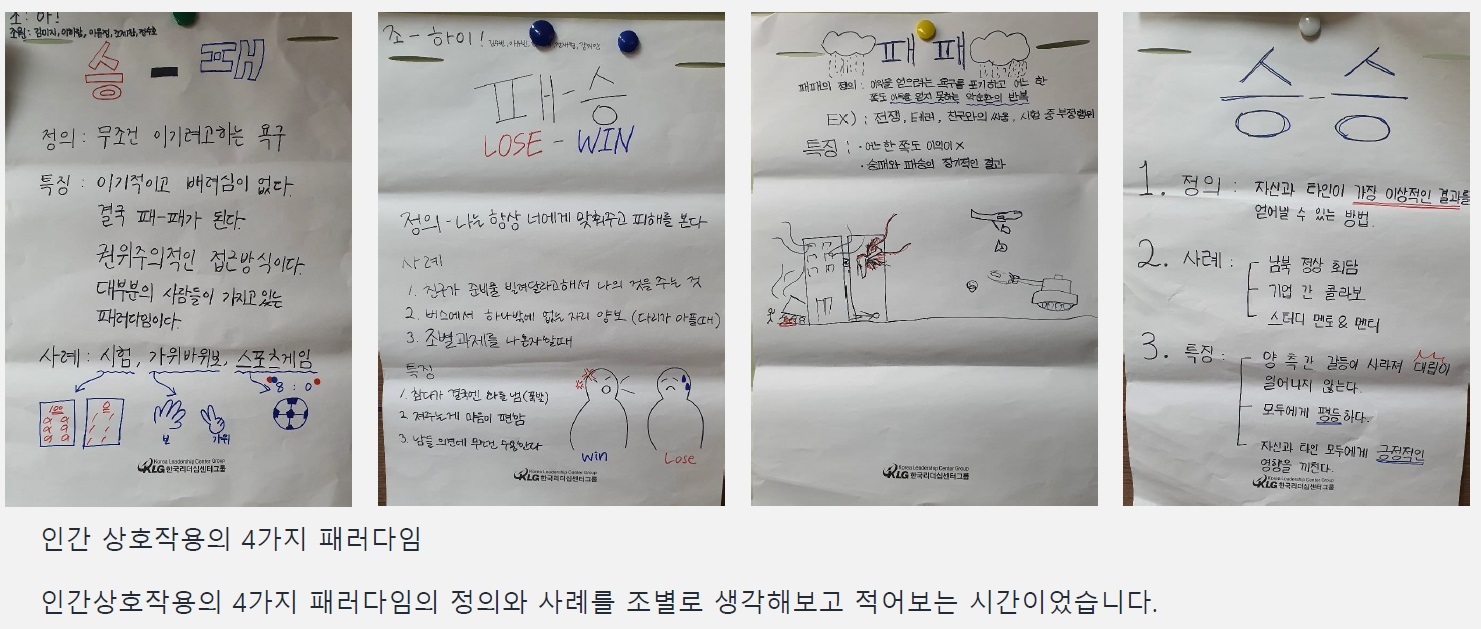 조: 아!
승 - 패
정의 : 무조건 이기려고하는 욕구
특징 : 이기적이고 배려심이 없다.
결국 패-패가 된다.
권위주의적인 접근방식이다.
대부분의 사람들이 가지고 있는
패러다임이다.
사례 : 시험, 가위바위보, 스포츠게임
8 : 0
100 0
보 가위
Korea Leadership Center Group
KLG 한국리더십센터그룹
조 - 하이!
패 - 승
LOSE - WIN
정의 - 나는 항상 너에게 맞춰주고 피해를 본다
사례
1. 친구가 준비물 빌려달라고해서 나의 것을 주는 것
2. 버스에서 하나밖에 없는 자리 양보 (다리가 아플때)
3. 조별과제를 나혼자할때
특징
1. 참다가 결국엔 화를 냄 (폭발)
2. 져주는게 마음이 편함
3. 남들 의견에 무조건 수용한다
win Lose
Korea Leadership Center Group
KLG 한국리더십센터그룹
패 패
패패의 정의 : 이익을 얻으려는 욕구를 포기하고 어느 한
쪽도 이득을 얻지 못하는 악순환의 반복
EX) : 전쟁, 테러, 친구와의 싸움, 시험 중 부정행위
특징 : · 어느 한 쪽도 이익이 X
· 승패와 패승의 장기적인 결과
Korea Leadership Center Group
KLG 한국리더십센터그룹
승 - 승
1. 정의 : 자신과 타인이 가장 이상적인 결과를
얻어낼 수 있는 방법.
2. 사례 : 남북 정상 회담
기업 간 콜라보
스터디 멘토 & 멘티
3. 특징 : 양 측 간 갈등이 사라져 대립이
일어나지 않는다.
모두에게 평등하다.
자신과 타인 모두에게 긍정적인
영향을 끼친다.
Korea Leadership Center Group
KLG 한국리더십센터그룹
인간 상호작용의 4가지 패러다임
인간상호작용의 4가지 패러다임의 정의와 사례를 조별로 생각해보고 적어보는 시간이었습니다.